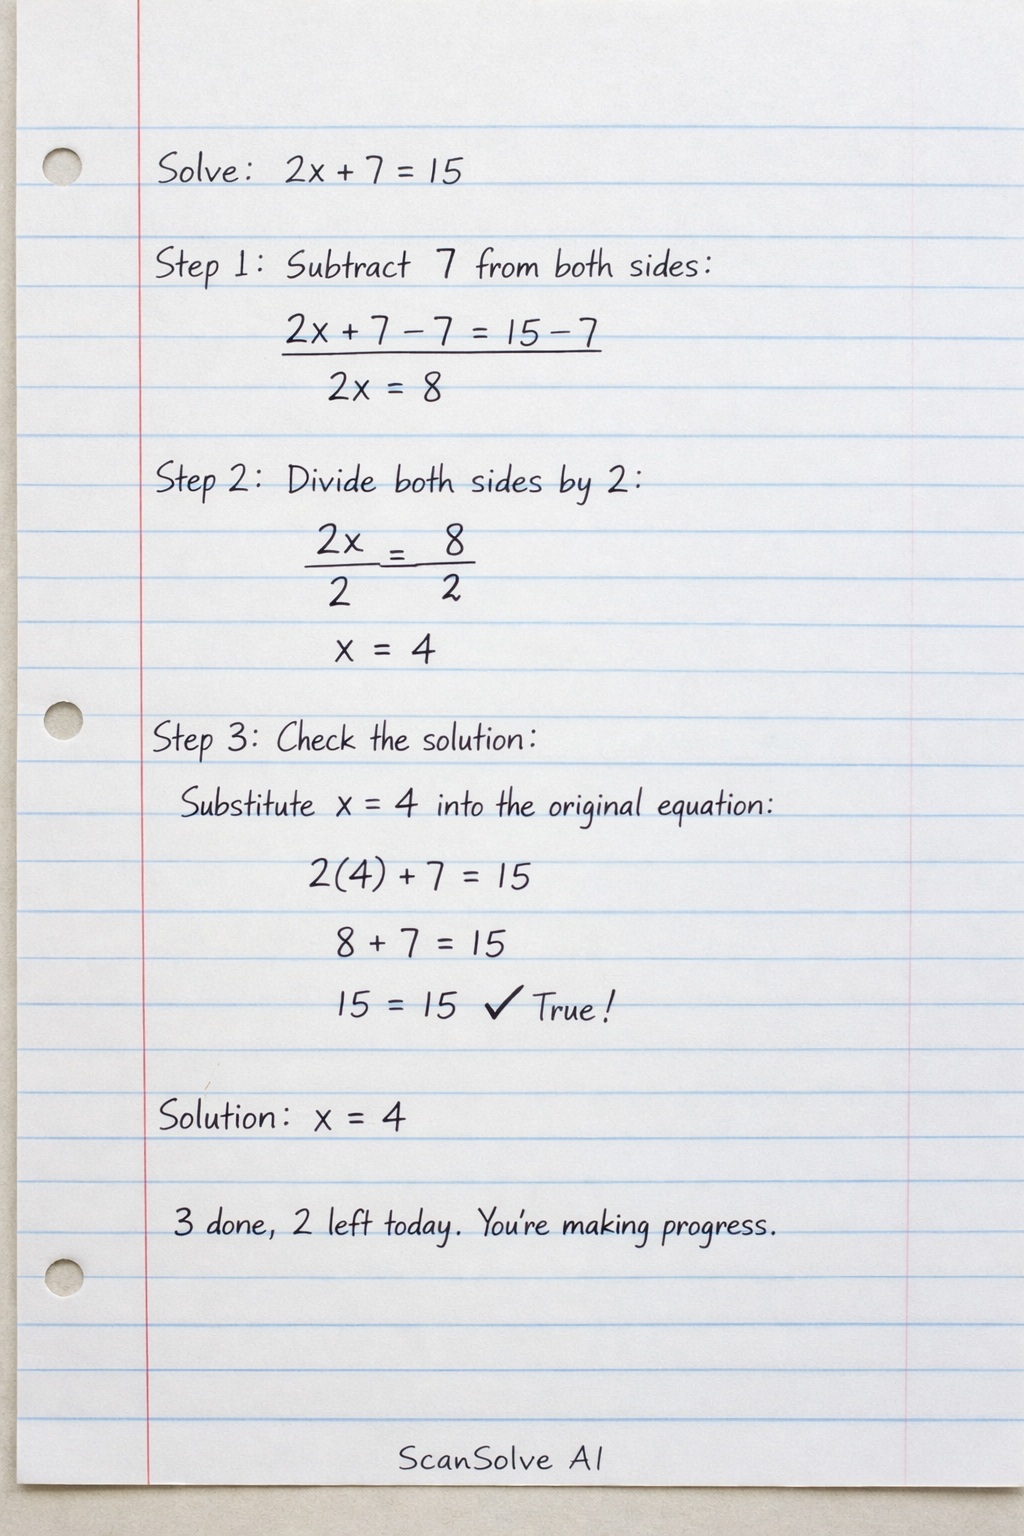 Solve: 2x + 7 = 15
Step 1: Subtract 7 from both sides:
2x + 7 − 7 = 15 − 7
2x = 8
Step 2: Divide both sides by 2:
2x = 8
2 2
x = 4
Step 3: Check the solution:
Substitute x = 4 into the original equation:
2(4) + 7 = 15
8 + 7 = 15
15 = 15 ✓ True!
Solution: x = 4
3 done, 2 left today. You're making progress.
ScanSolve AI